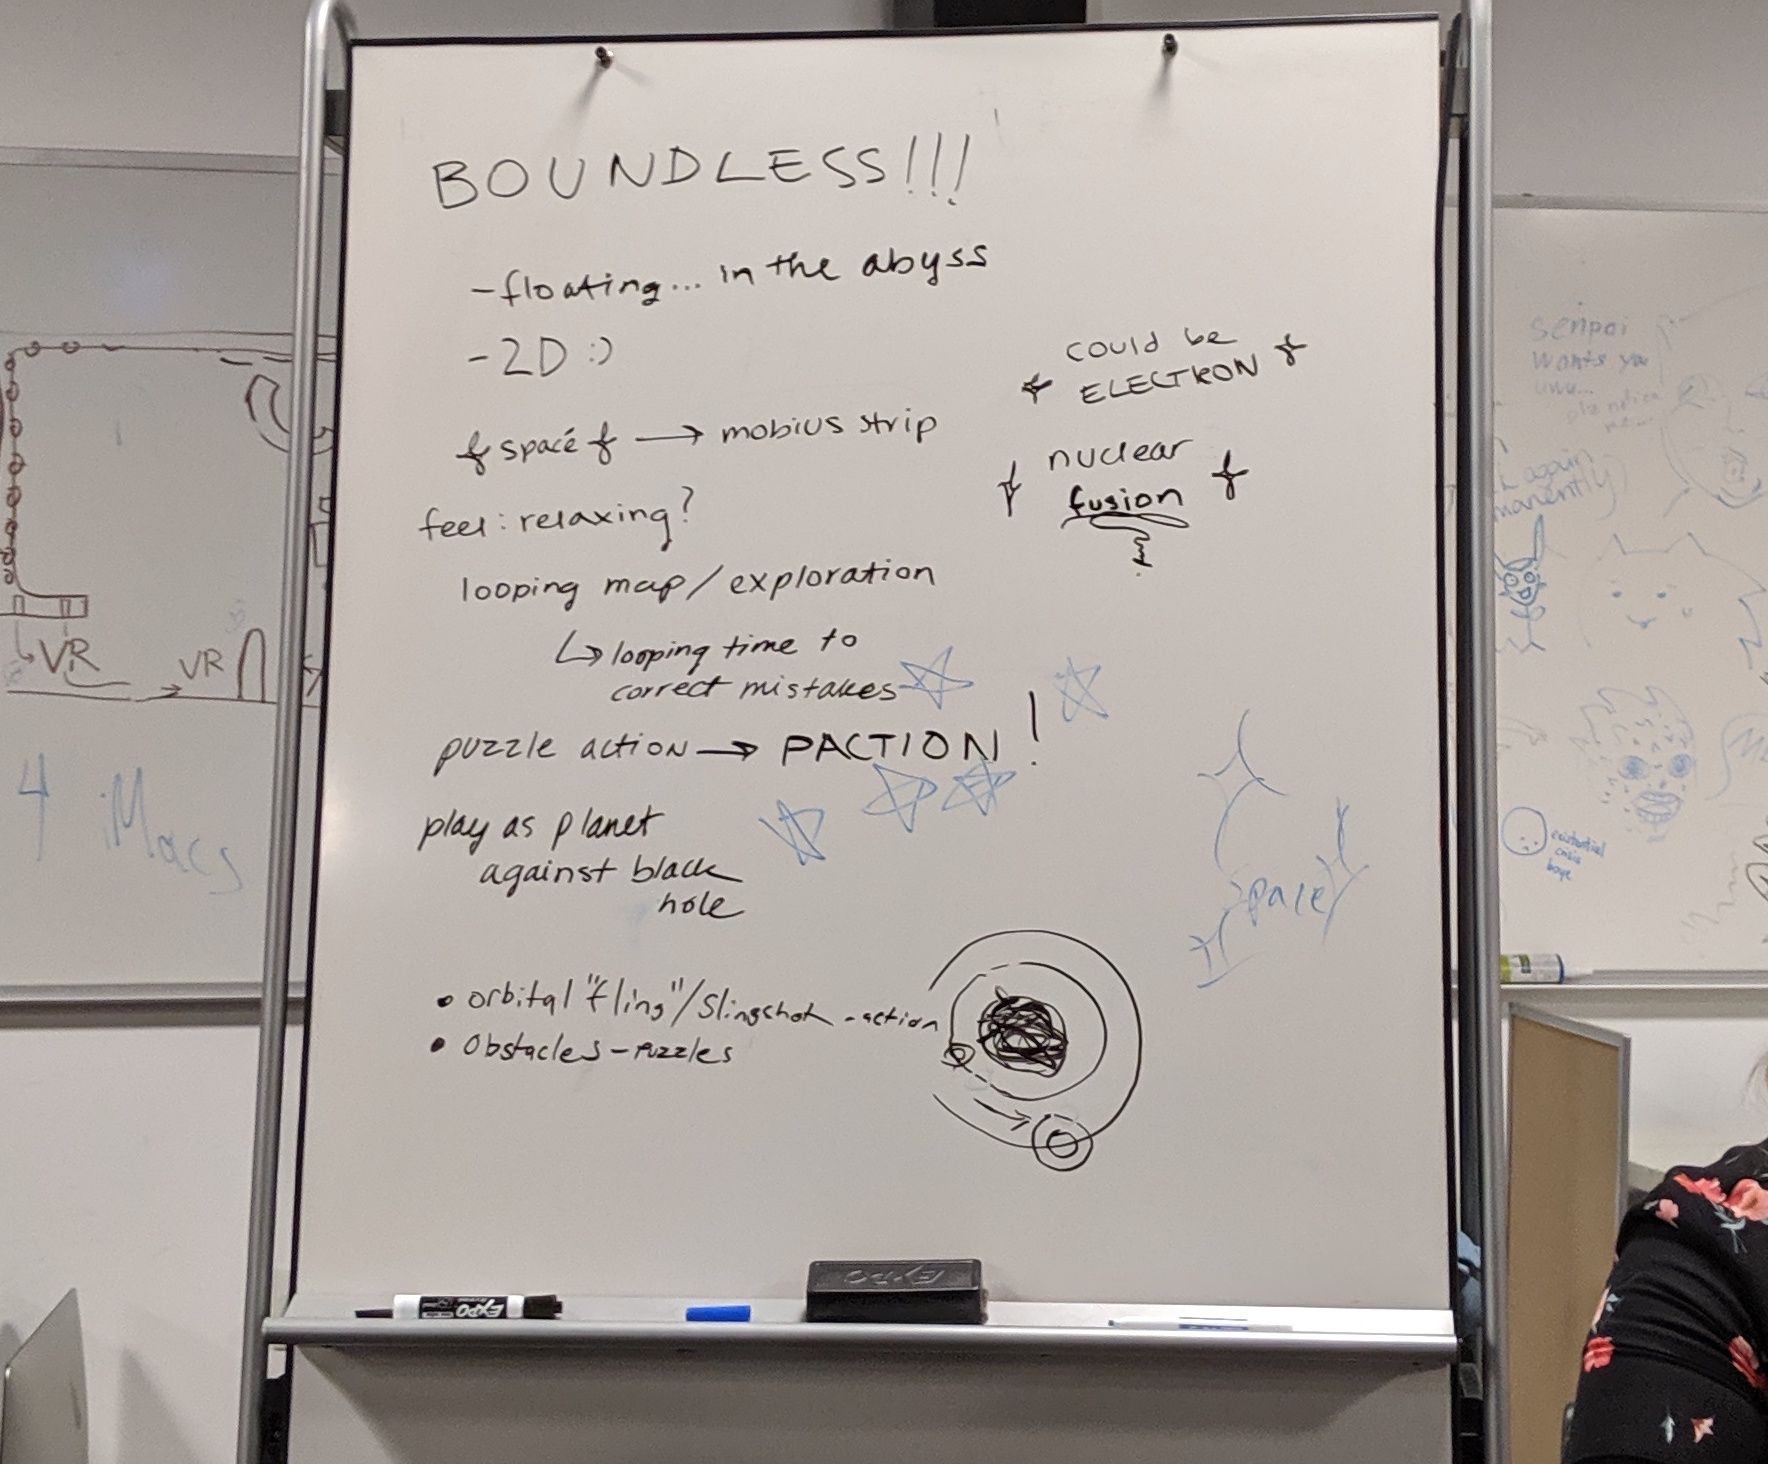 BOUNDLESS!!!
-floating... in the abyss
-2D :)
space → mobius strip
feel: relaxing?
looping map/exploration
↳ looping time to
correct mistakes
puzzle action → PACTION!
play as planet
against black
hole
• orbital "fling"/slingshot -action
• Obstacles-puzzles
could be
ELECTRON
nuclear
fusion
space
EXPO
EXPO
VR
VR
4 iMacs
senpai
wants you
uwu...
again
existential
crisis
boye